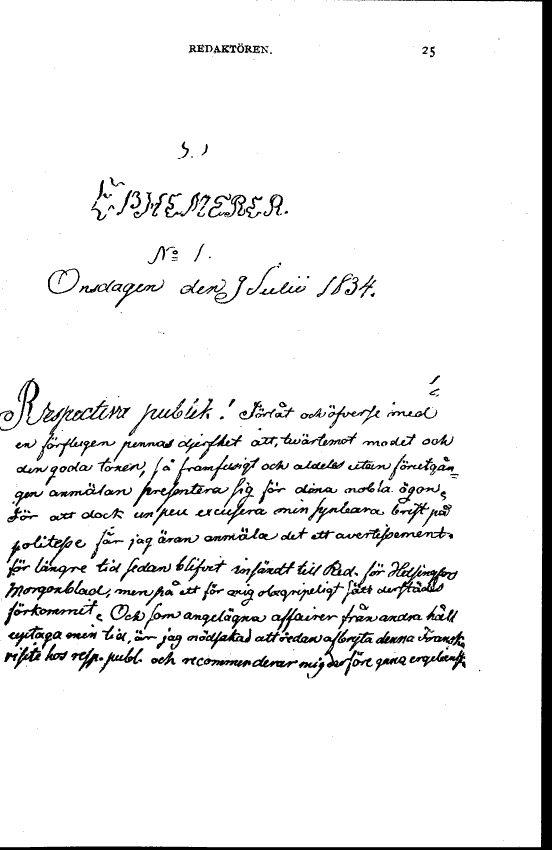 REDAKTÖREN. 25
EPHEMERER.
No 1.
Onsdagen den 9 Julii 1834.
Respectiva publik! Förlåt och öfverse med
en förflugen pennas djerfhet att, tvärtemot modet och
den goda tonen, så framfusigt och aldeles utan föregån=
gen anmälan presentera sig för dina nobla ögon.
För att dock un peu excusera min synbara brist på
politesse får jag äran anmäla det ett avertissement
för längre tid sedan blifvit insändt till Red. för Helsingfors
Morgonblad, men på ett för mig obegripeligt sätt derstädes
förkommit. Och som angelägna affairer från andra håll
upptaga min tid, är jag nödsakad att redan afbryta denna Fransk
visite hos resp. publ. och recommenderar mig derföre ganska